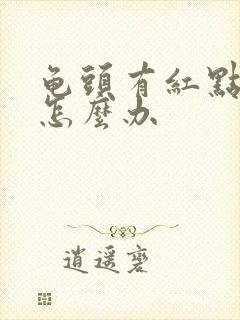 龟頭有紅點
怎麼办
逍遥褒